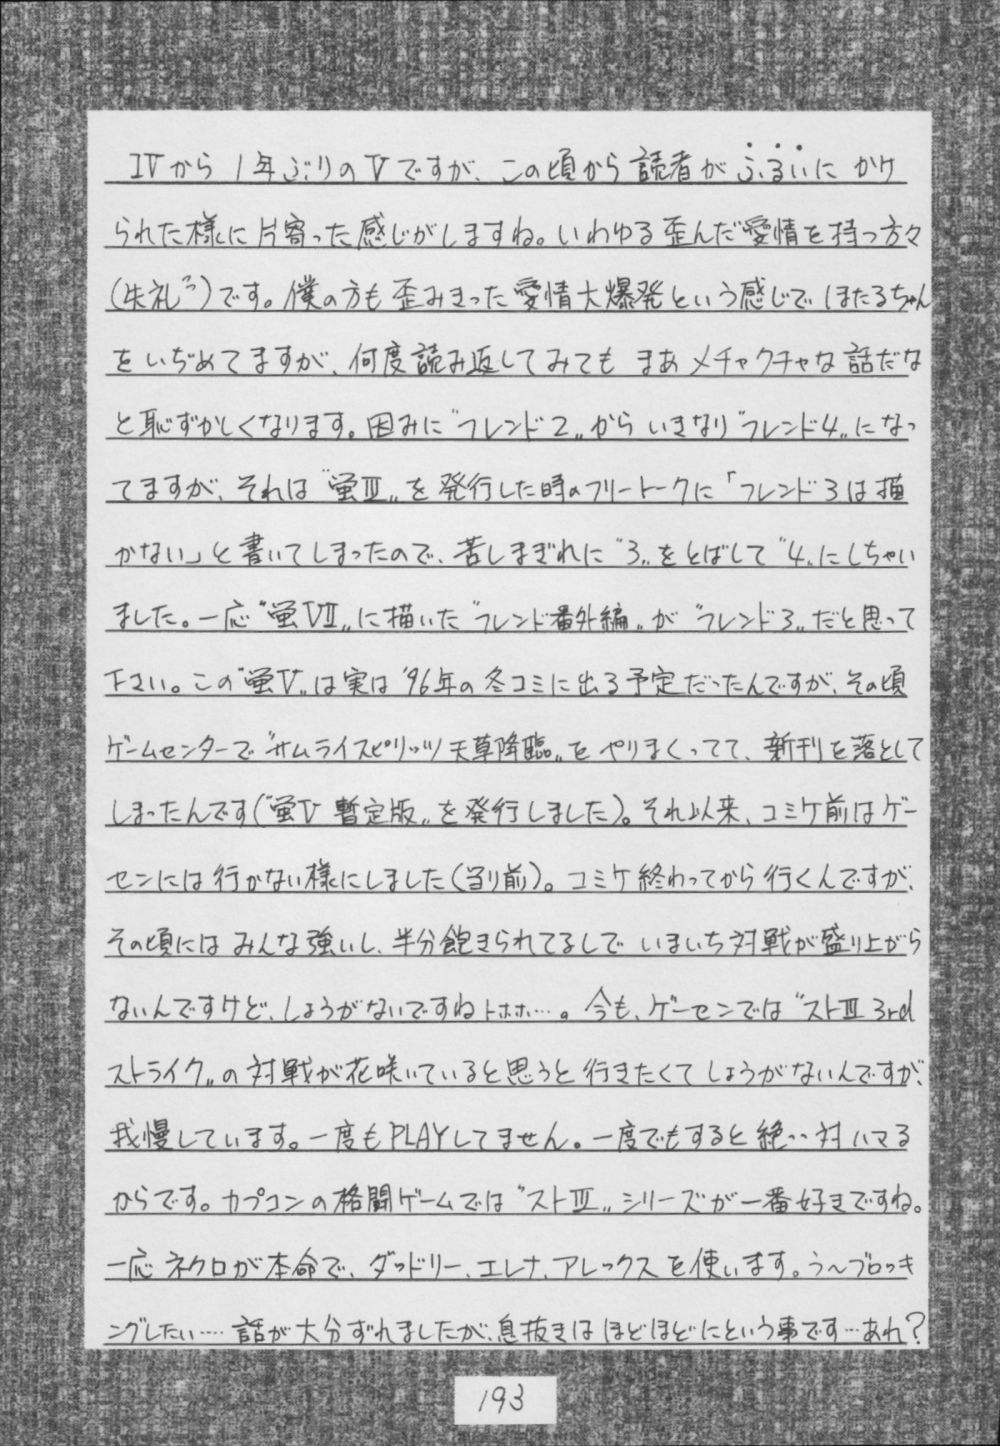 IVから1年ぶりのVですが、この頃から読者がふるいにかけ
られた様に片寄った感じがしますね。いわゆる歪んだ愛情を持つ方々
(失礼っ)です。僕の方も歪みきった愛情大爆発という感じでほたるちゃん
をいぢめてますが、何度読み返してみてもまあメチャクチャな話だな
と恥ずかしくなります。因みに〝フレンド2〟からいきなり〝フレンド4〟になっ
てますが、それは〝蛍III〟を発行した時のフリートークに「フレンド3は描
かない」と書いてしまったので、苦しまぎれに〝3〟をとばして〝4〟にしちゃい
ました。一応〝蛍VII〟に描いた〝フレンド番外編〟が〝フレンド3〟だと思って
下さい。この〝蛍V〟は実は'96年の冬コミに出る予定だったんですが、その頃
ゲームセンターで〝サムライスピリッツ天草降臨〟をやりまくってて、新刊を落として
しまったんです(〝蛍V 暫定版〟を発行しました)。それ以来、コミケ前はゲー
センには行かない様にしました(当り前)。コミケ終わってから行くんですが、
その頃にはみんな強いし、半分飽きられてるしでいまいち対戦が盛り上がら
ないんですけど、しょうがないですねトホホ…。今も、ゲーセンでは〝ストIII 3rd
ストライク〟の対戦が花咲いていると思うと行きたくてしょうがないんですが、
我慢しています。一度もPLAYしてません。一度でもすると絶〻対ハマる
からです。カプコンの格闘ゲームでは〝ストIII〟シリーズが一番好きですね。
一応ネクロが本命で、ダッドリー、エレナ、アレックスを使います。う〜ブロッキ
ングしたい…. 話が大分ずれましたが、息抜きはほどほどにという事です…あれ?
193